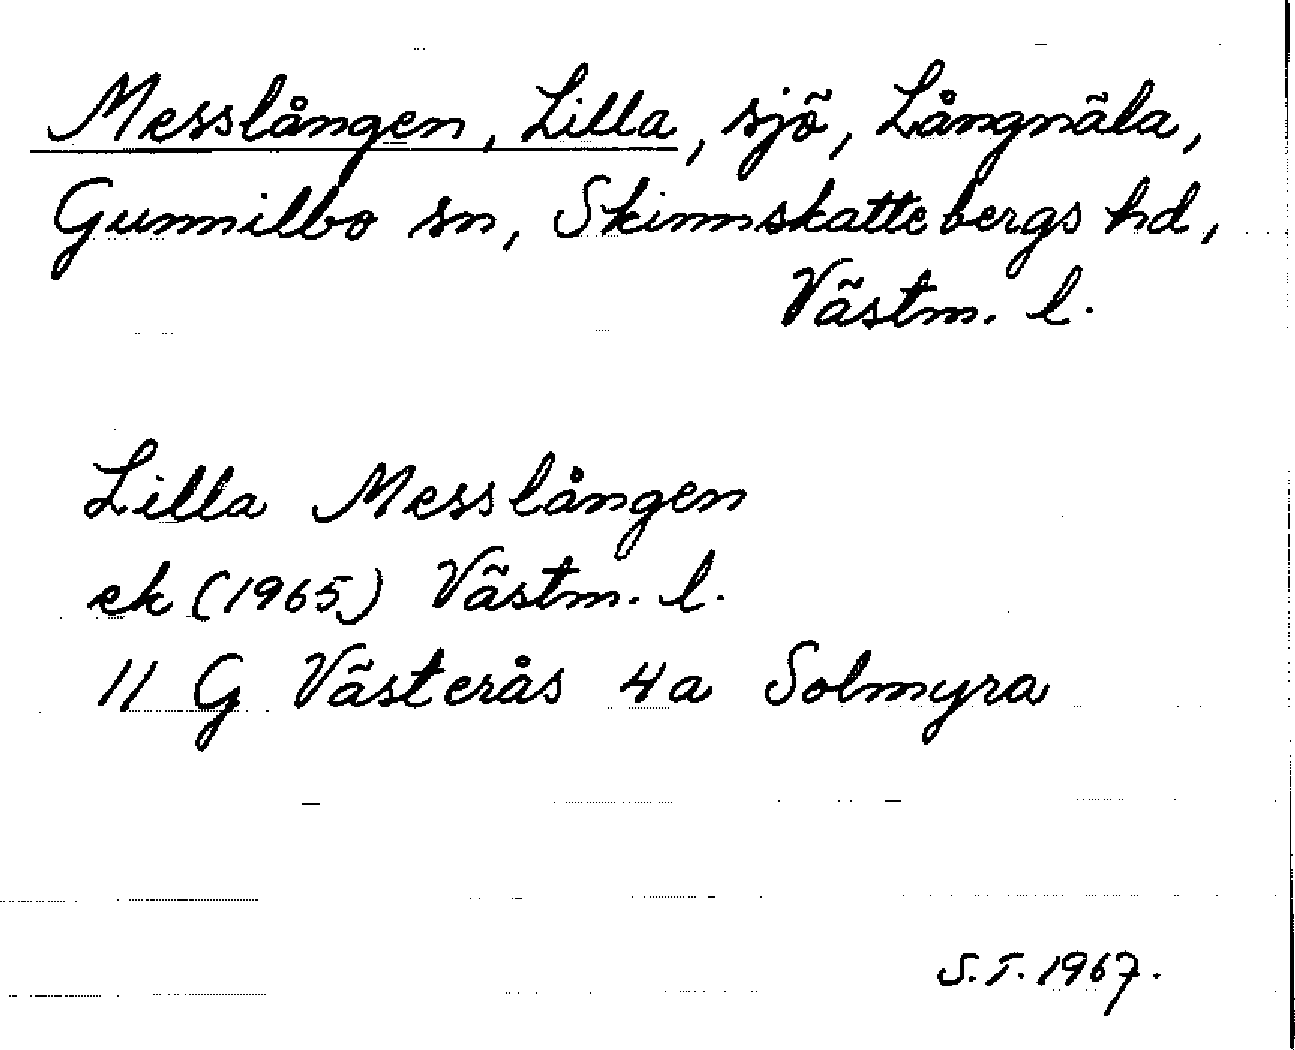 Messlången, Lilla, sjö, Långnäla,
Gunnilbo sn, Skinnskattebergs hd,
Västm. l.
Lilla Messlången
ek (1965) Västm. l.
11 G Västerås 4a Solmyra
S.T. 1967.